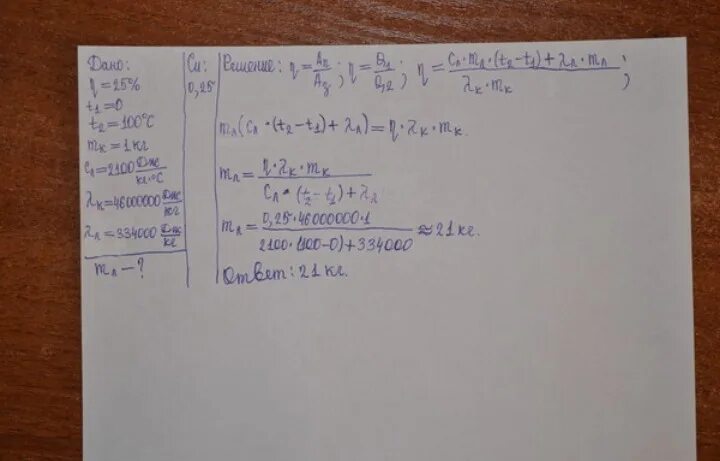 Дано:
η = 25%
t₁ = 0
t₂ = 100°C
mк = 1 кг
cл = 2100 Дж/кг·°C
λк = 46000000 Дж/кг
λл = 334000 Дж/кг
mл – ?
Си:
0,25
Решение: η = Aп/Aз; η = Q1/Q2; η = cл·mл·(t₂–t₁)+λл·mл/λк·mк;
mл(cл·(t₂–t₁)+λл) = η·λк·mк.
mл = η·λк·mк/cл·(t₂–t₁)+λл
mл = 0,25·46000000·1/2100·(100–0)+334000 ≈ 21 кг.
Ответ: 21 кг.